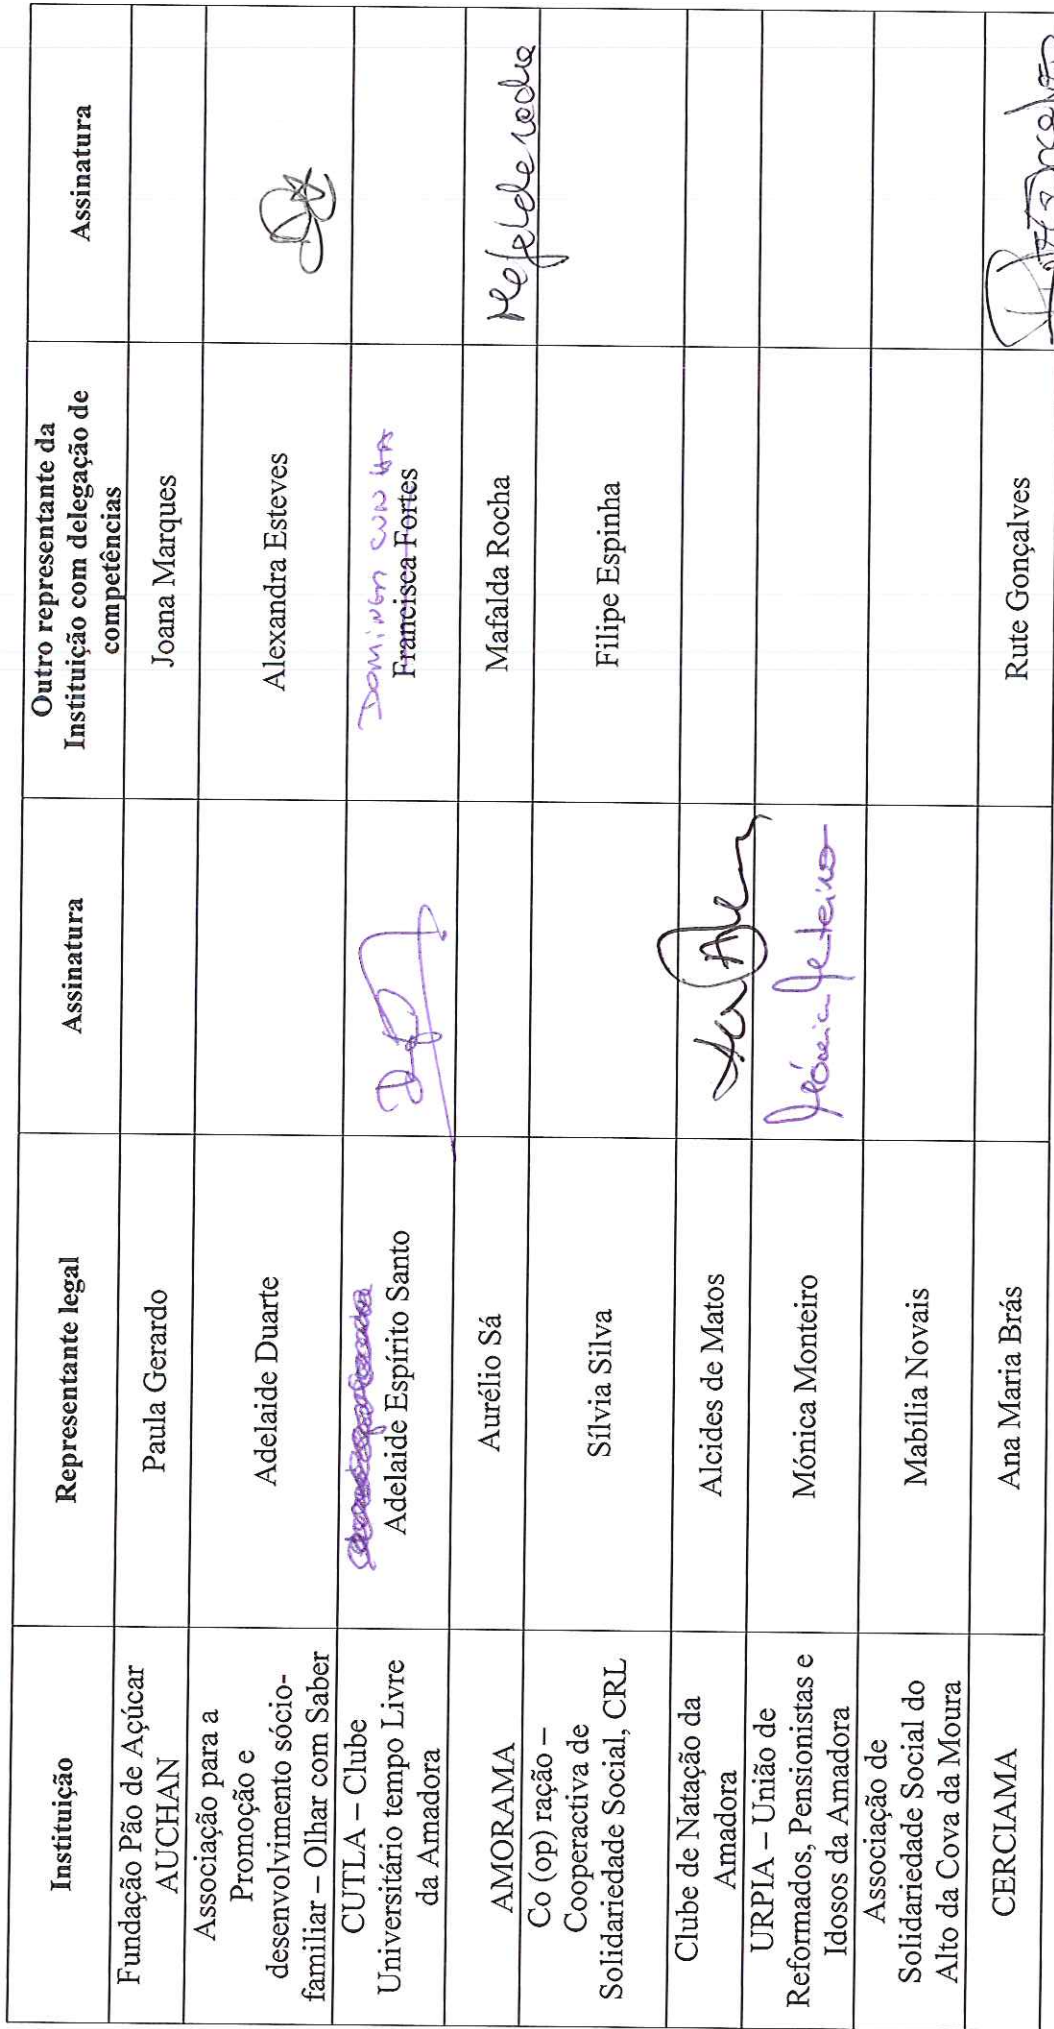 Instituição
Representante legal
Assinatura
Outro representante da
Instituição com delegação de
competências
Assinatura
Fundação Pão de Açúcar
AUCHAN
Paula Gerardo
Joana Marques
Associação para a
Promoção e
desenvolvimento sócio-
familiar – Olhar com Saber
Adelaide Duarte
Alexandra Esteves
CUTLA – Clube
Universitário tempo Livre
da Amadora
Adelaide Espírito Santo
Francisca Fortes
AMORAMA
Aurélio Sá
Mafalda Rocha
Mafalda Rocha
Co (op) ração –
Cooperactiva de
Solidariedade Social, CRL
Sílvia Silva
Filipe Espinha
Clube de Natação da
Amadora
Alcides de Matos
URPIA – União de
Reformados, Pensionistas e
Idosos da Amadora
Mónica Monteiro
Mónica Monteiro
Associação de
Solidariedade Social do
Alto da Cova da Moura
Mabília Novais
CERCIAMA
Ana Maria Brás
Rute Gonçalves